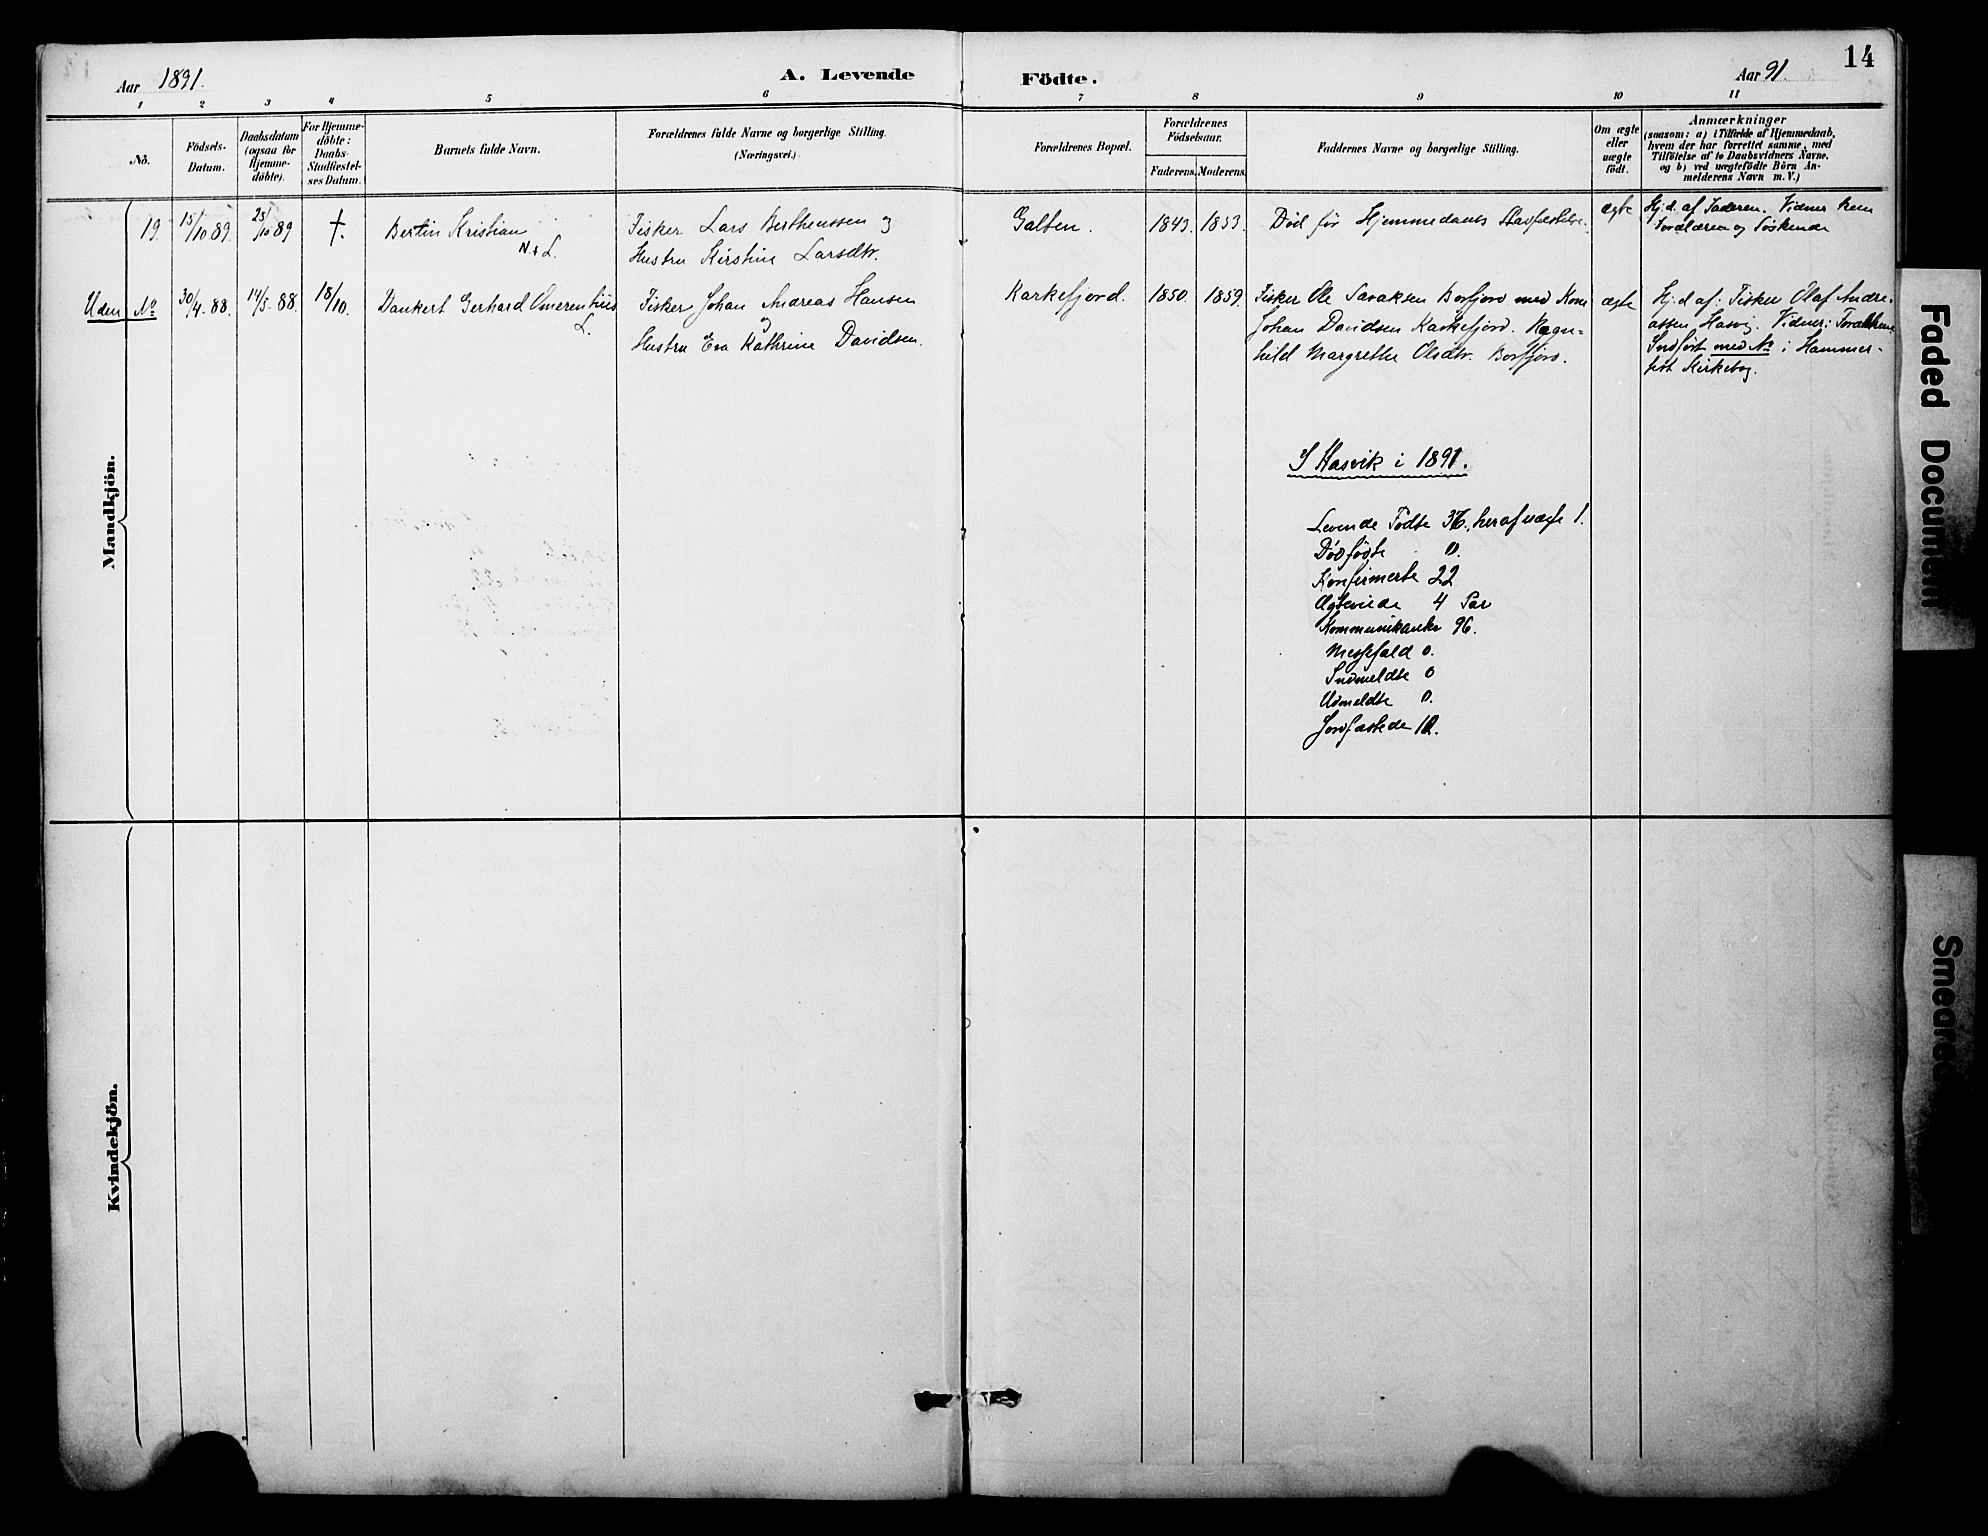 Aar 1891.
A. Levende Födte.
Aar 91
14
1 2 3 4 5 6 7 8 9 10 11
No.
Födsels-
Datum.
Daabsdatum
(ogsaa for
Hjemme-
döbte).
For Hjemme-
döbte:
Daabs-
Stadfæstel-
ses Datum.
Barnets fulde Navn.
Forældrenes fulde Navne og borgerlige Stilling.
(Næringsvei.)
Forældrenes Bopæl.
Forældrenes
Födselsaar.
Faderens. Moderens.
Faddernes Navne og borgerlige Stilling.
Om ægte
eller
uægte
födt.
Anmærkninger
(saasom: a) i Tilfælde af Hjemmedaab,
hvem der har forrettet samme, med
Tilföielse af to Daabsvidners Navne,
og b) ved uægtefödte Börn An-
melderens Navn m. V.)
Mandkjön.
19.
15/10 89.
25/10 89
†.
Bertin Kristian
N. & L.
Fisker Lars Berthenssen og
Hustru Kirstine Larsdtr.
Galten.
1843.
1853.
Død før Hjemmedaabs Stadfæstelse.
ægte
Hj. d. af Faderen. Vidner kun
Forældrene og Söskende
Uden No
30/4. 88.
14/5. 88.
18/10.
Dankert Gerhard Omerentius
L.
Fisker Johan Andreas Hansen
og
Hustru Eva Kathrine Davidsen.
Karkefjord.
1850.
1859.
Fisker Ole Savaksen Borfjord med Kone
Johan Davidsen Karkefjord. Ragn-
hild Margrethe Olsdtr. Borfjord.
ægte
Hj. d. af: Fisker Olaf Andre-
assen Hasvig. Vidner: Forældrene
Indført med No i Hammer-
fest Kirkebog.
I Hasvik i 1891.
Levende Fødte 36, heraf uægte 1.
Dødfødte 0.
Konfirmerte 22
Ægteviede 4 Par
Kommunikanter 96.
Messefald 0.
Indmeldte 0
Udmeldte 0.
Jordfæstede 10.
Kvindekjön.
Faded Document
Smeared